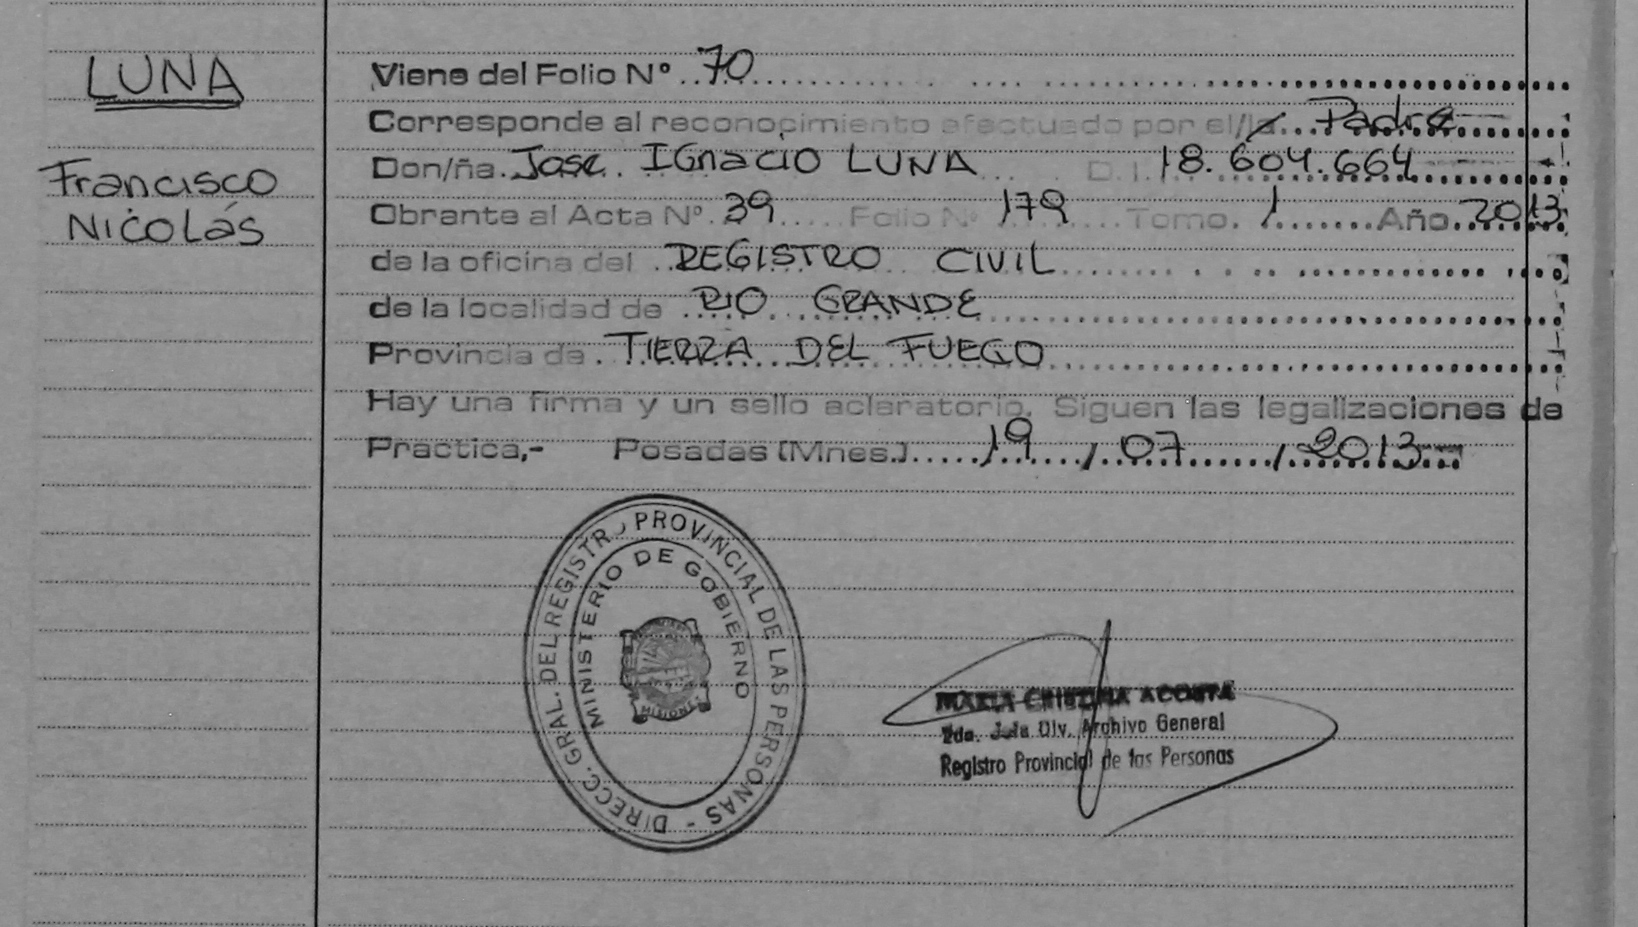 LUNA
Francisco
Nicolás
Viene del Folio Nº 70
Corresponde al reconocimiento efectuado por el/la Padre
Don/ña. Jose Ignacio LUNA D.I. 18.604.664
Obrante al Acta Nº. 39 Folio Nº 179 Tomo. 1 Año. 2013
de la oficina del REGISTRO CIVIL
de la localidad de RIO GRANDE
Provincia de TIERRA DEL FUEGO
Hay una firma y un sello aclaratorio. Siguen las legalizaciones de
Practica,- Posadas (Mnes.) 19 / 07 / 2013
DIRECC. GRAL. DEL REGISTRO PROVINCIAL DE LAS PERSONAS -
MINISTERIO DE GOBIERNO
MISIONES
MARIA CRISTINA ACOSTA
2da. Jefa Div. Archivo General
Registro Provincial de las Personas